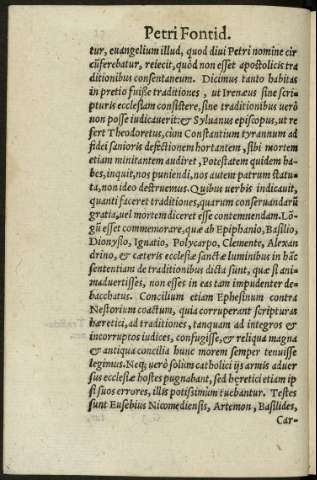 Petri Fontid.
tur, euangelium illud, quod diui Petri nomine cir
cũferebatur, reiecit, quòd non esset apostolicis tra
ditionibus consentaneum. Dicimus tanto habitas
in pretio fuiße traditiones, ut Irenæus sine scri-
pturis ecclesiam consistere, sine traditionibus uerò
non posse iudicauerit: & Syluanus episcopus, ut re
fert Theodoretus, cùm Constantium tyrannum ad
fidei sanioris defectionem hortantem, sibi mortem
etiam minitantem audiret, Potestatem quidem ha-
bes, inquit, nos puniendi, nos autem patrum statu-
ta, non ideo destruemus. Quibus uerbis indicauit,
quanti faceret traditiones, quarum conseruandarũ
gratia, uel mortem diceret esse contemnendam. Lõ-
gũ esset commemorare, quæ ab Epiphanio, Basilio,
Dionysio, Ignatio, Polycarpo, Clemente, Alexan
drino, & cæteris ecclesiæ sanctæ luminibus in hãc
sententiam de traditionibus dicta sunt, quæ si ani-
maduertisses, non esset in eas tam impudenter de-
bacchatus. Concilium etiam Ephesinum contra
Nestorium coactum, quia corruperant scripturas
hæretici, ad traditiones, tanquam ad integros &
incorruptos iudices, confugisse, & reliqua magna
& antiqua concilia hunc morem semper tenuisse
legimus. Neq; uerò solùm catholici ijs armis aduer
sus ecclesiæ hostes pugnabant, sed hęretici etiam ip
si suos errores, illis potissimùm tuebantur. Testes
sunt Eusebius Nicomediensis, Artemon, Basilides,
Car-